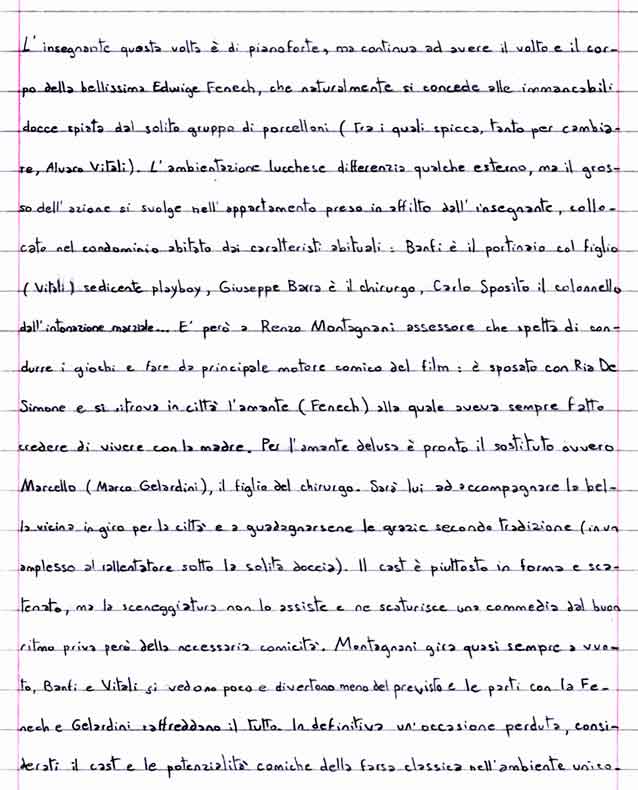 L'insegnante questa volta è di pianoforte, ma continua ad avere il volto e il cor-
po della bellissima Edwige Fenech, che naturalmente si concede alle immancabili
docce spiata dal solito gruppo di porcelloni (tra i quali spicca, tanto per cambia-
re, Alvaro Vitali). L'ambientazione lucchese differenzia qualche esterno, ma il gros-
so dell'azione si svolge nell'appartamento preso in affitto dall'insegnante, collo-
cato nel condominio abitato dai caratteristi abituali: Banfi è il portinaio col figlio
(Vitali) sedicente playboy, Giuseppe Barra è il chirurgo, Carlo Sposito il colonnello
dall'intonazione marziale... E' però a Renzo Montagnani assessore che spetta di con-
durre i giochi e fare da principale motore comico del film: è sposato con Ria De
Simone e si ritrova in città l'amante (Fenech) alla quale aveva sempre fatto
credere di vivere con la madre. Per l'amante delusa è pronto il sostituto ovvero
Marcello (Marco Gelardini), il figlio del chirurgo. Sarà lui ad accompagnare la bel-
la vicina in giro per la città e a guadagnarsene le grazie secondo tradizione (in un
amplesso al rallentatore sotto la solita doccia). Il cast è piuttosto in forma e sca-
tenato, ma la sceneggiatura non lo assiste e ne scaturisce una commedia dal buon
ritmo priva però della necessaria comicità. Montagnani gira quasi sempre a vuo-
to, Banfi e Vitali si vedono poco e divertono meno del previsto e le parti con la Fe-
nech e Gelardini raffreddano il tutto. In definitiva un'occasione perduta, consi-
derati il cast e le potenzialità comiche della farsa classica nell'ambiente unico.